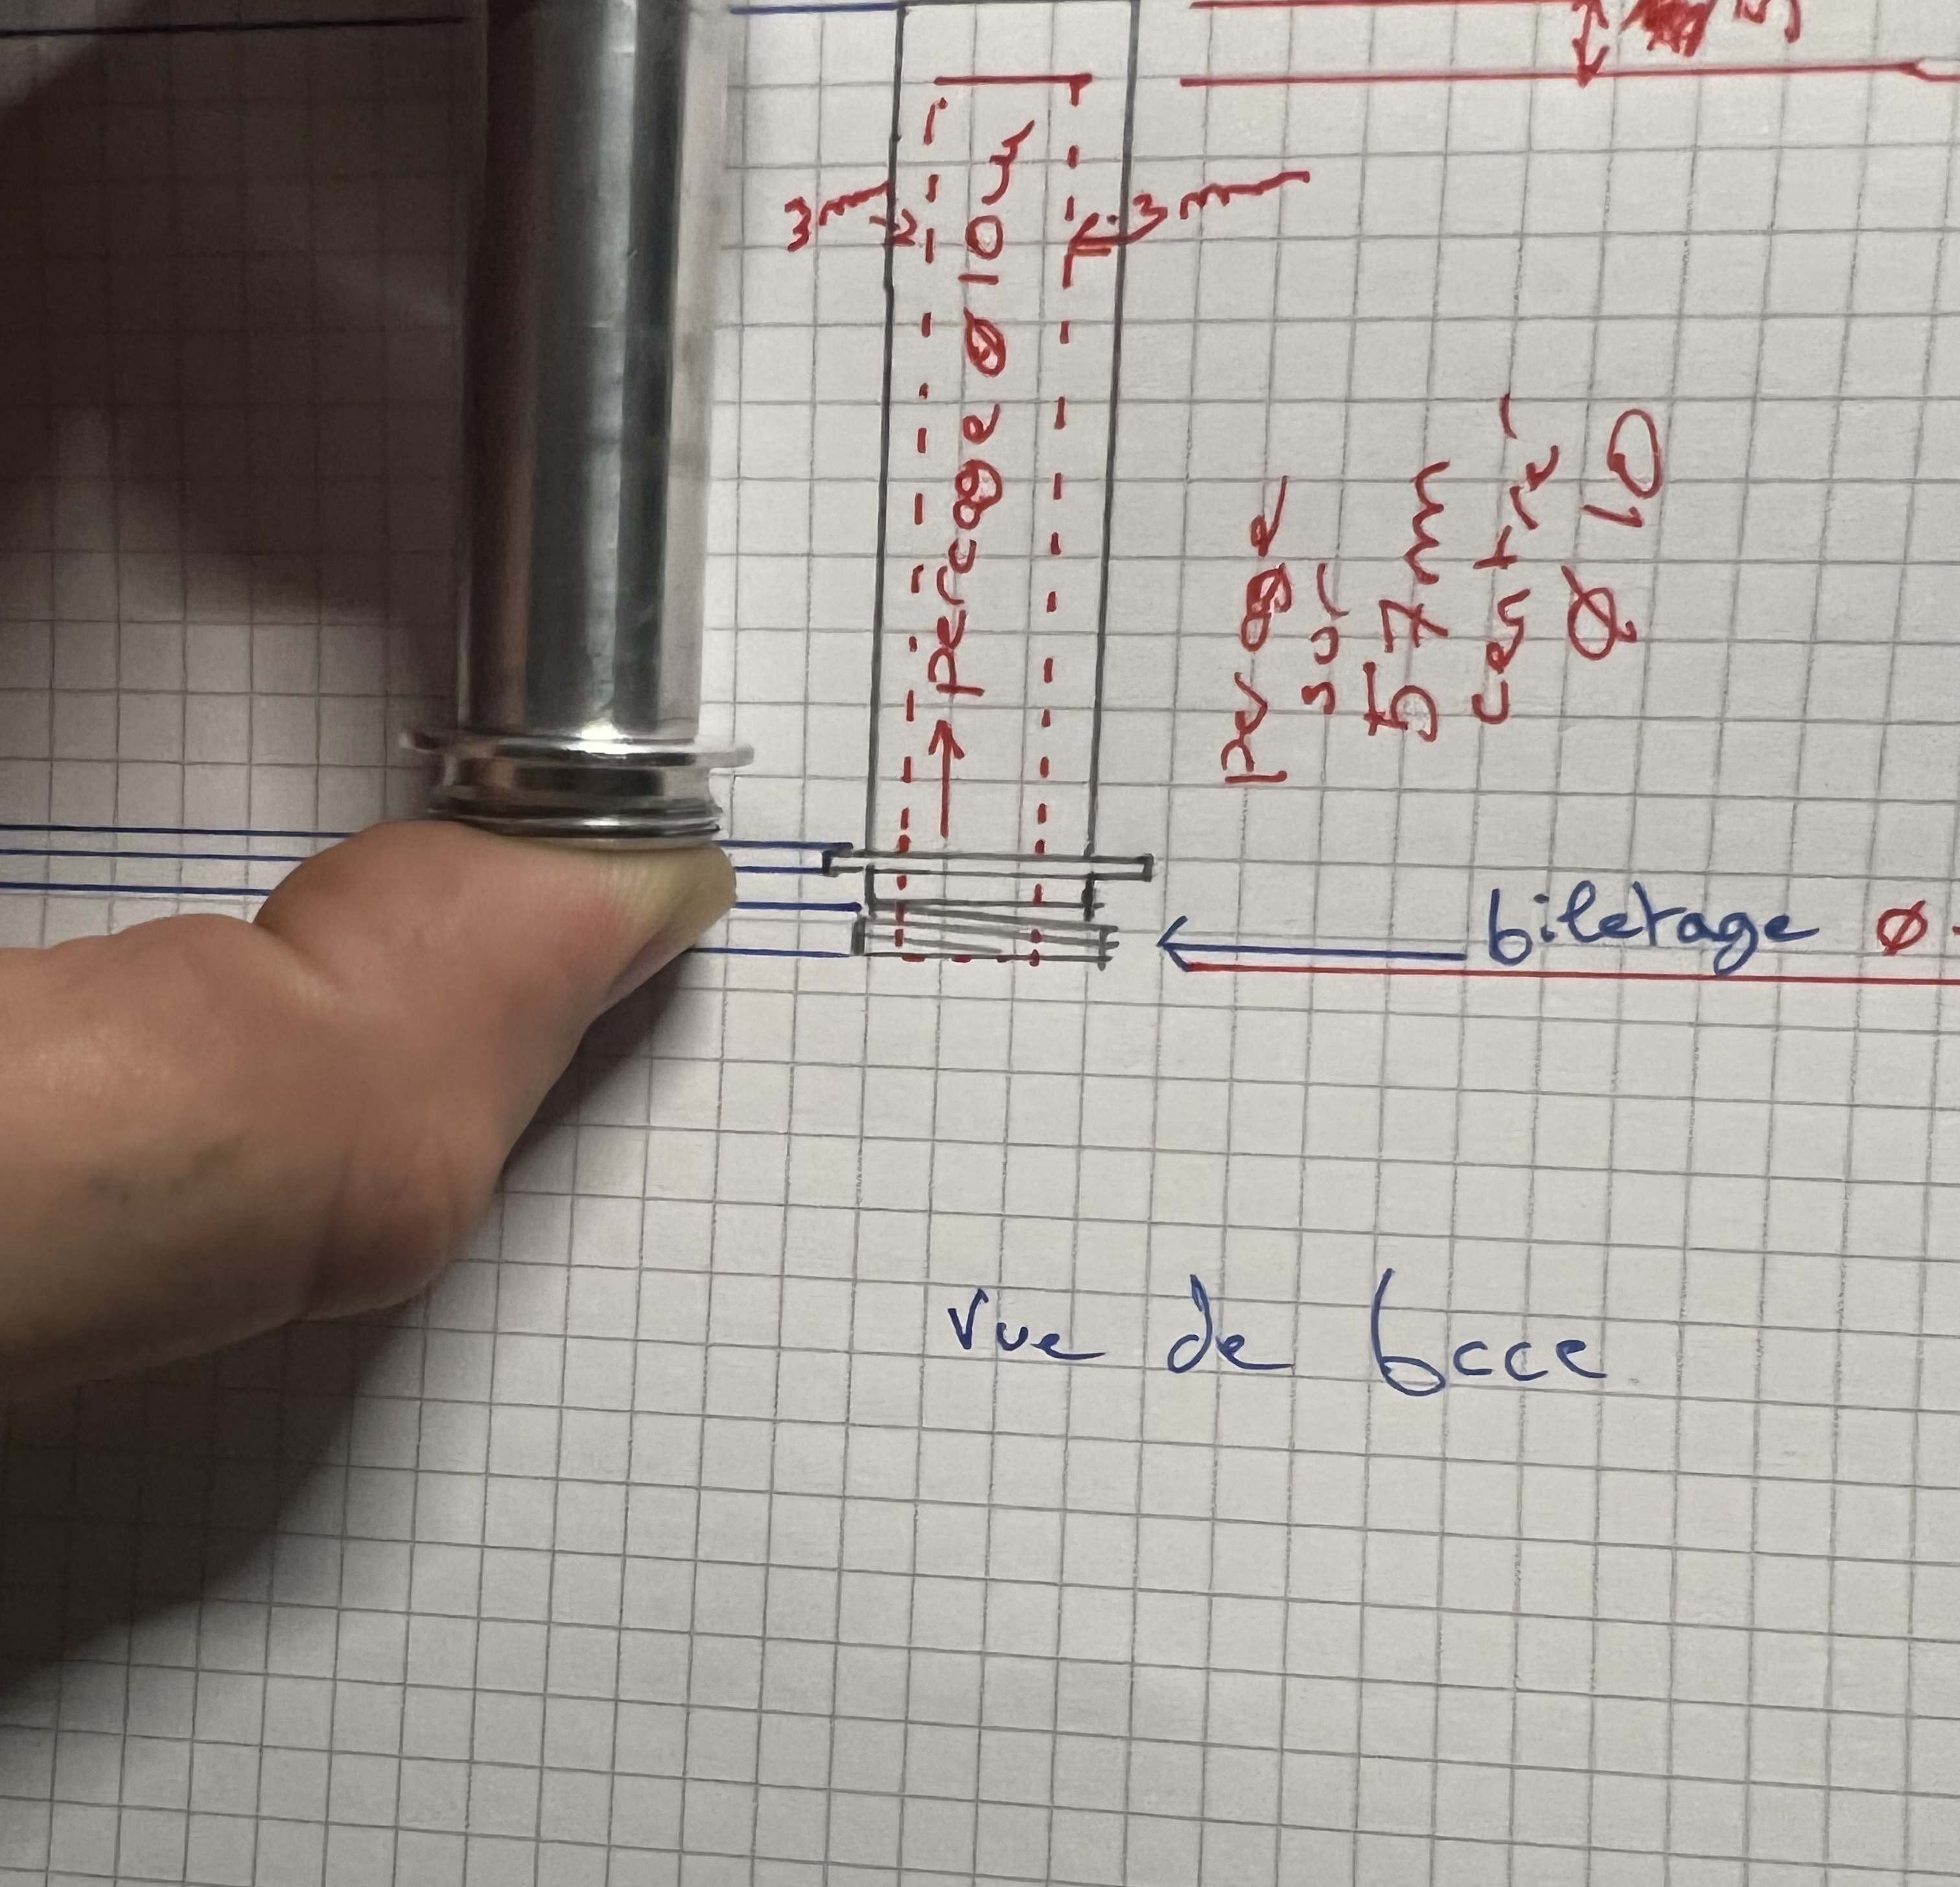 3 m
3 m
perçage ø 10 m
perçage
sur
57 m
centré
ø 10
filetage ø
Vue de face